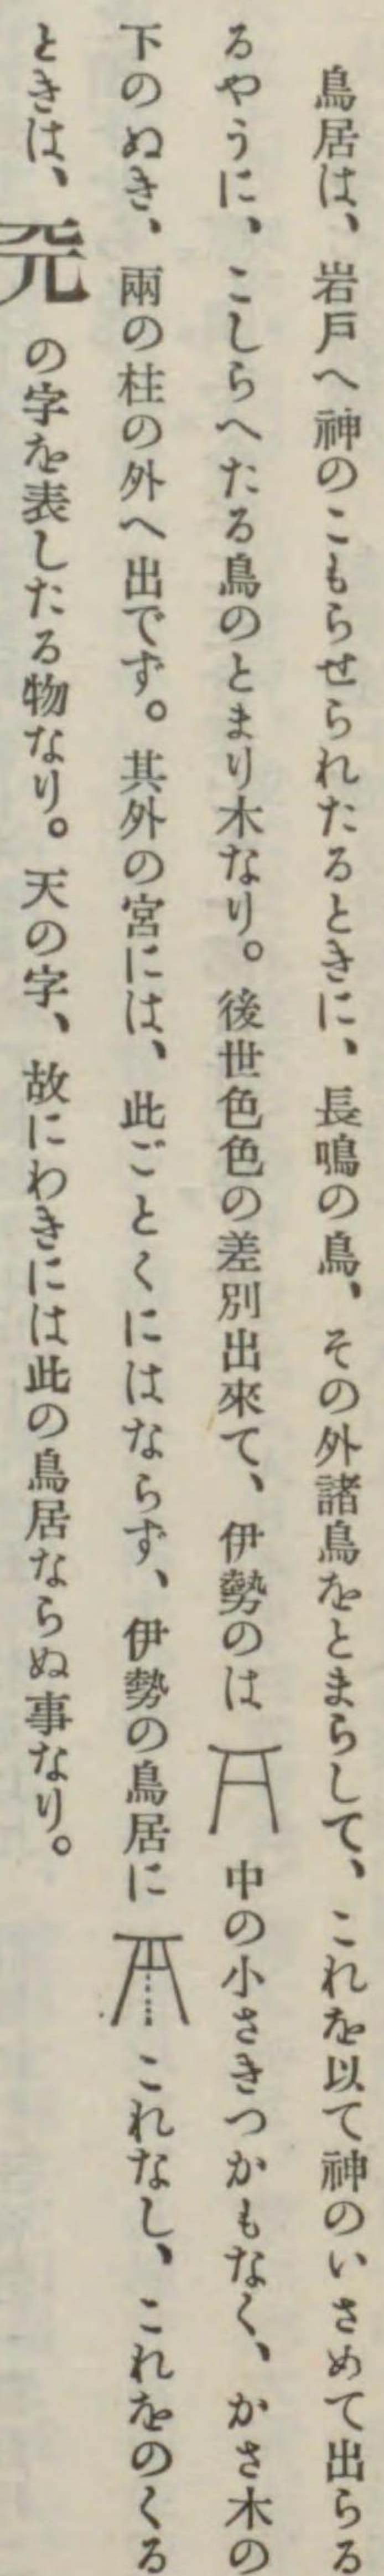 鳥居は、岩戸へ神のこもらせられたるときに、長鳴の鳥、その外諸鳥をとまらして、これを以て神のいさめて出らる
るやうに、こしらへたる鳥のとまり木なり。後世色色の差別出來て、伊勢のは中の小さきつかもなく、かさ木の
下のぬき、兩の柱の外へ出でず。其外の宮には、此ごとくにはならず、伊勢の鳥居にこれなし、これをのくる
ときは、兲の字を表したる物なり。天の字、故にわきには此の鳥居ならぬ事なり。